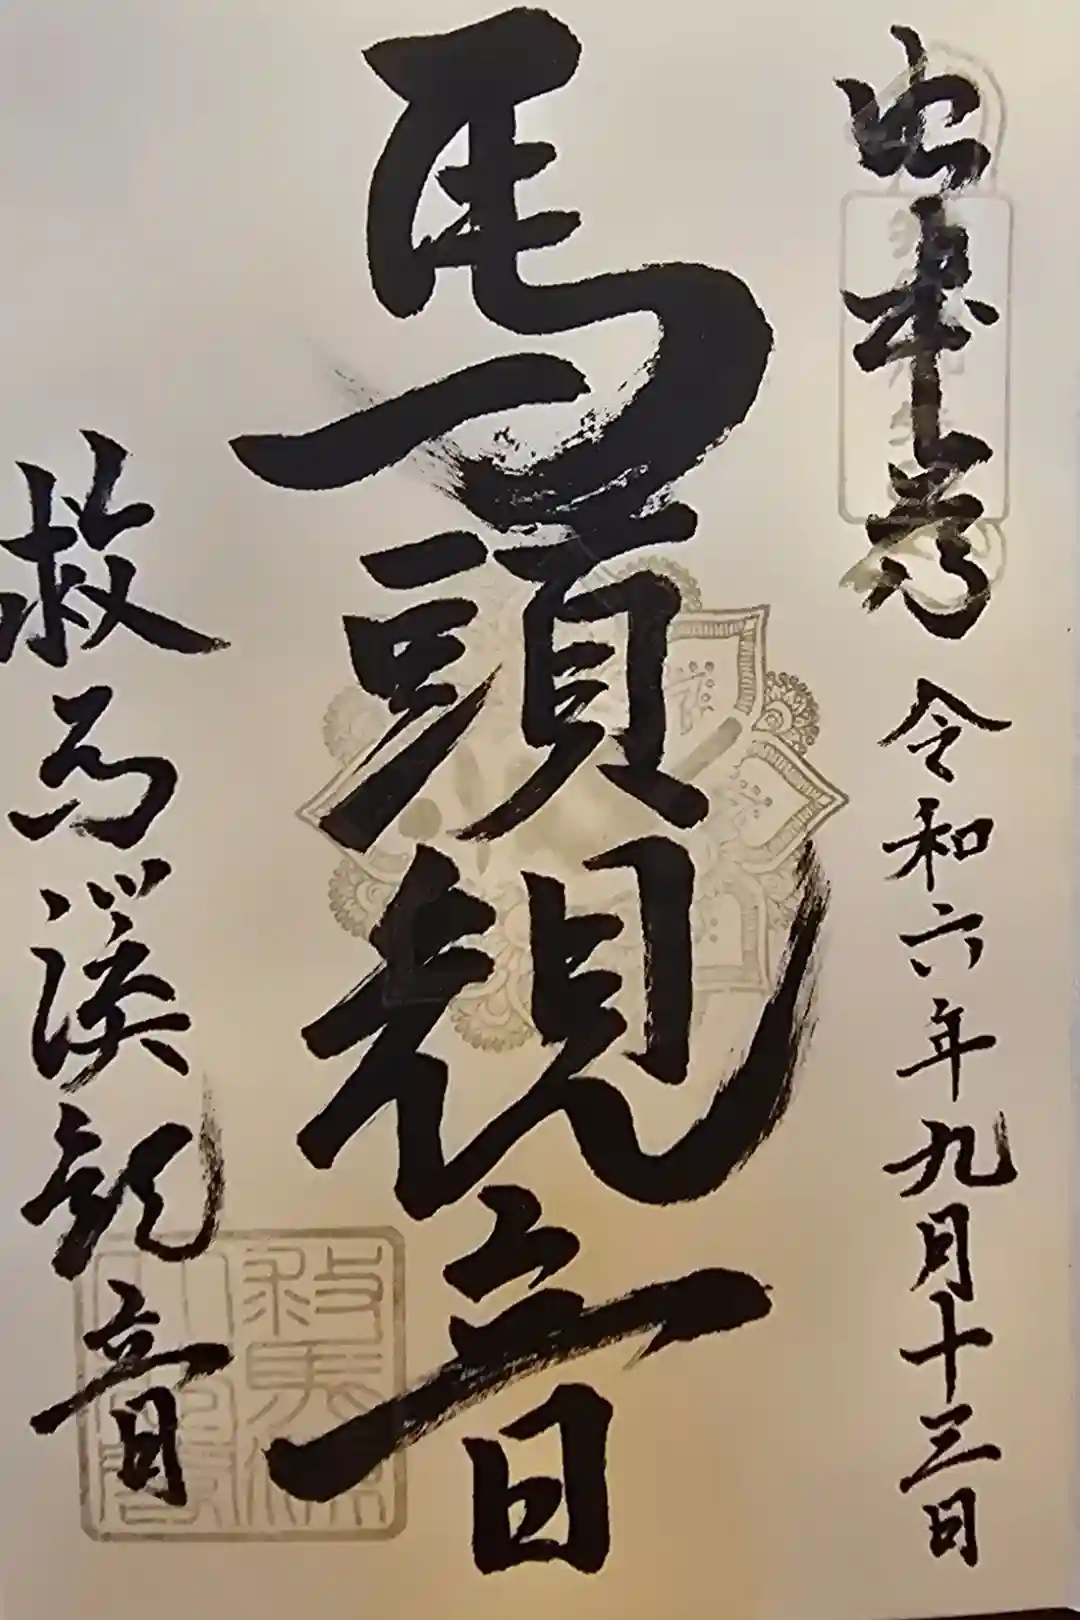 令和六年九月十三日
馬頭観音
救馬溪観音